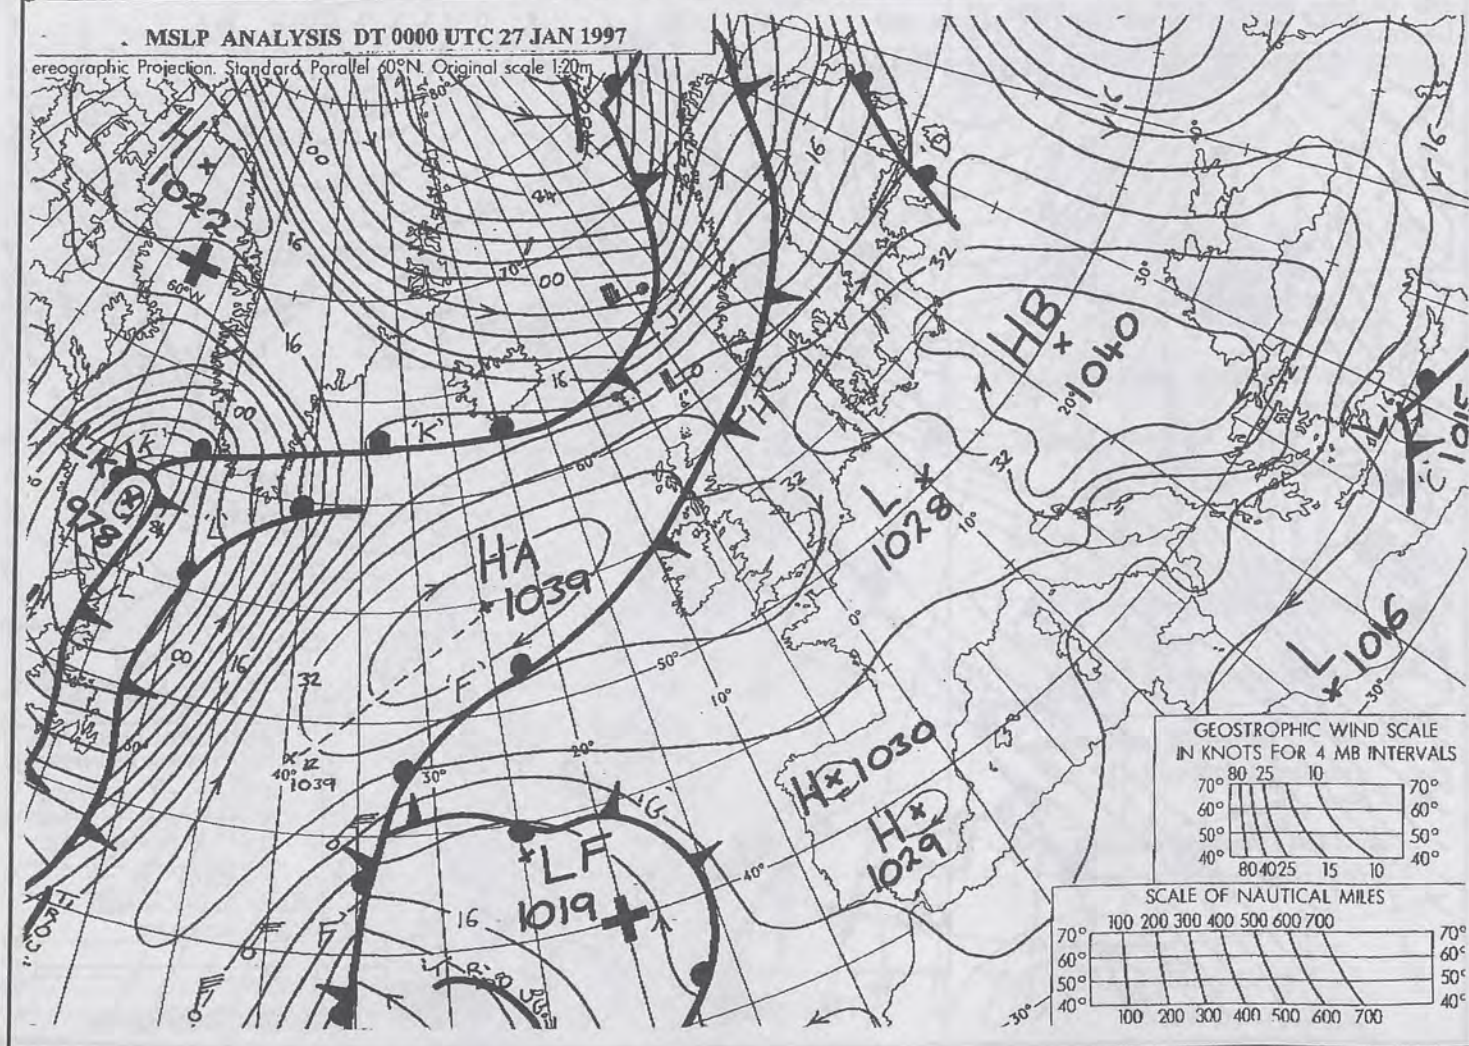 MSLP ANALYSIS DT 0000 UTC 27 JAN 1997
ereographic Projection. Standard Parallel 60°N. Original scale 1:20m
80°
H
1022
60°W
00
84
16
70°
00
16
16
00
16
32
'B'
16
16
30°
HB
1040
20°
32
16
'K'
'K'
LK
978
'H'
60°
32
32
L
1028
10°
HA
1039
00
16
32
'F'
50°
0°
10°
20°
30°
40°
1039
'C'
1015
L
1016
30°
H 1030
H
1029
40°
'G'
LF
1019
16
30°
GEOSTROPHIC WIND SCALE
IN KNOTS FOR 4 MB INTERVALS
80 25 10
70° 70°
60° 60°
50° 50°
40° 40°
80 40 25 15 10
SCALE OF NAUTICAL MILES
100 200 300 400 500 600 700
70° 70°
60° 60°
50° 50°
40° 40°
100 200 300 400 500 600 700